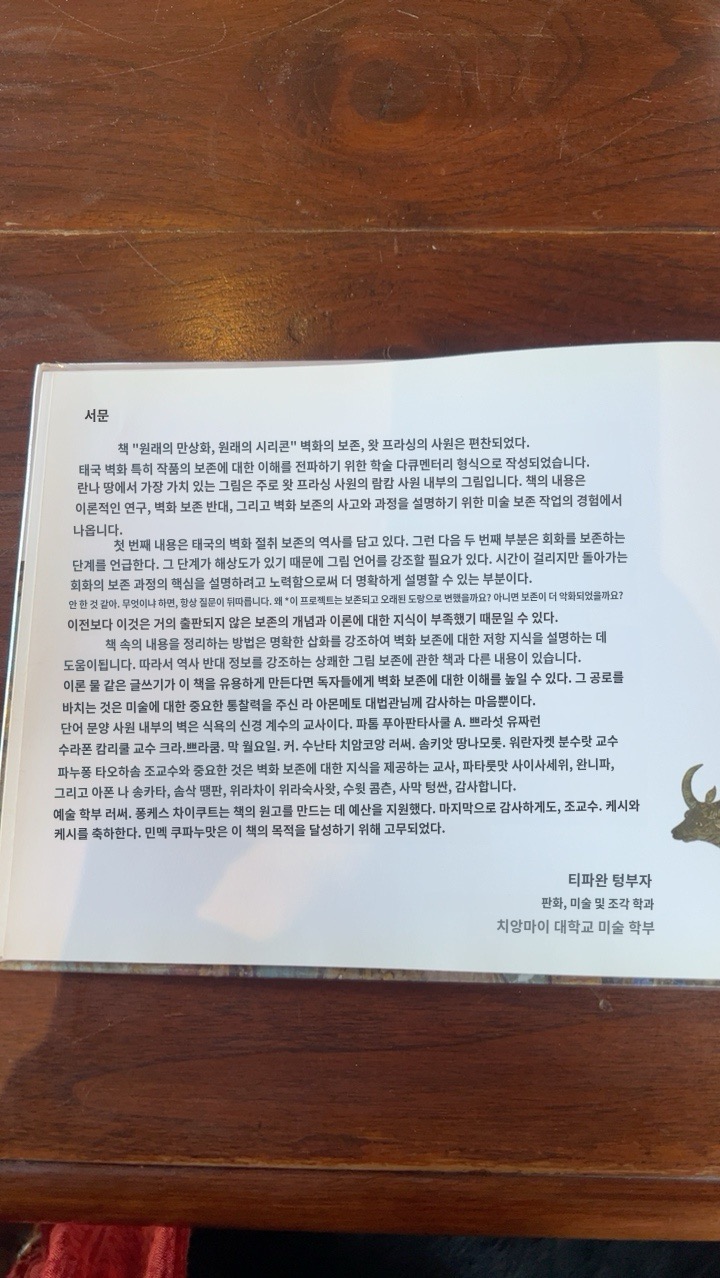 서문
책 "원래의 만상화, 원래의 시리콘" 벽화의 보존, 왓 프라싱의 사원은 편찬되었다.
태국 벽화 특히 작품의 보존에 대한 이해를 전파하기 위한 학술 다큐멘터리 형식으로 작성되었습니다.
란나 땅에서 가장 가치 있는 그림은 주로 왓 프라싱 사원의 람캄 사원 내부의 그림입니다. 책의 내용은
이론적인 연구, 벽화 보존 반대, 그리고 벽화 보존의 사고와 과정을 설명하기 위한 미술 보존 작업의 경험에서
나옵니다.
첫 번째 내용은 태국의 벽화 절취 보존의 역사를 담고 있다. 그런 다음 두 번째 부분은 회화를 보존하는
단계를 언급한다. 그 단계가 해상도가 있기 때문에 그림 언어를 강조할 필요가 있다. 시간이 걸리지만 돌아가는
회화의 보존 과정의 핵심을 설명하려고 노력함으로써 더 명확하게 설명할 수 있는 부분이다.
안 한 것 같아. 무엇이냐 하면, 항상 질문이 뒤따릅니다. 왜 *이 프로젝트는 보존되고 오래된 도랑으로 변했을까요? 아니면 보존이 더 악화되었을까요?
이전보다 이것은 거의 출판되지 않은 보존의 개념과 이론에 대한 지식이 부족했기 때문일 수 있다.
책 속의 내용을 정리하는 방법은 명확한 삽화를 강조하여 벽화 보존에 대한 저항 지식을 설명하는 데
도움이됩니다. 따라서 역사 반대 정보를 강조하는 상쾌한 그림 보존에 관한 책과 다른 내용이 있습니다.
이론 물 같은 글쓰기가 이 책을 유용하게 만든다면 독자들에게 벽화 보존에 대한 이해를 높일 수 있다. 그 공로를
바치는 것은 미술에 대한 중요한 통찰력을 주신 라 아몬메토 대법관님께 감사하는 마음뿐이다.
단어 문양 사원 내부의 벽은 식욕의 신경 계수의 교사이다. 파톰 푸아판타사쿨 A. 쁘라섯 유짜런
수라폰 캄리쿨 교수 크라.쁘라쿰. 막 월요일. 커. 수난타 치암코앙 러써. 솜키앗 땅나모롯. 워란자켓 분수랏 교수
파누퐁 타오하솜 조교수와 중요한 것은 벽화 보존에 대한 지식을 제공하는 교사, 파타룻맛 사이사세위, 완니파,
그리고 아폰 나 송카타, 솜삭 땡판, 위라차이 위라숙사왓, 수윗 콤츤, 사막 텅싼, 감사합니다.
예술 학부 러써. 퐁케스 차이쿠트는 책의 원고를 만드는 데 예산을 지원했다. 마지막으로 감사하게도, 조교수. 케시와
케시를 축하한다. 민멕 쿠파누맛은 이 책의 목적을 달성하기 위해 고무되었다.
티파완 텅부자
판화, 미술 및 조각 학과
치앙마이 대학교 미술 학부